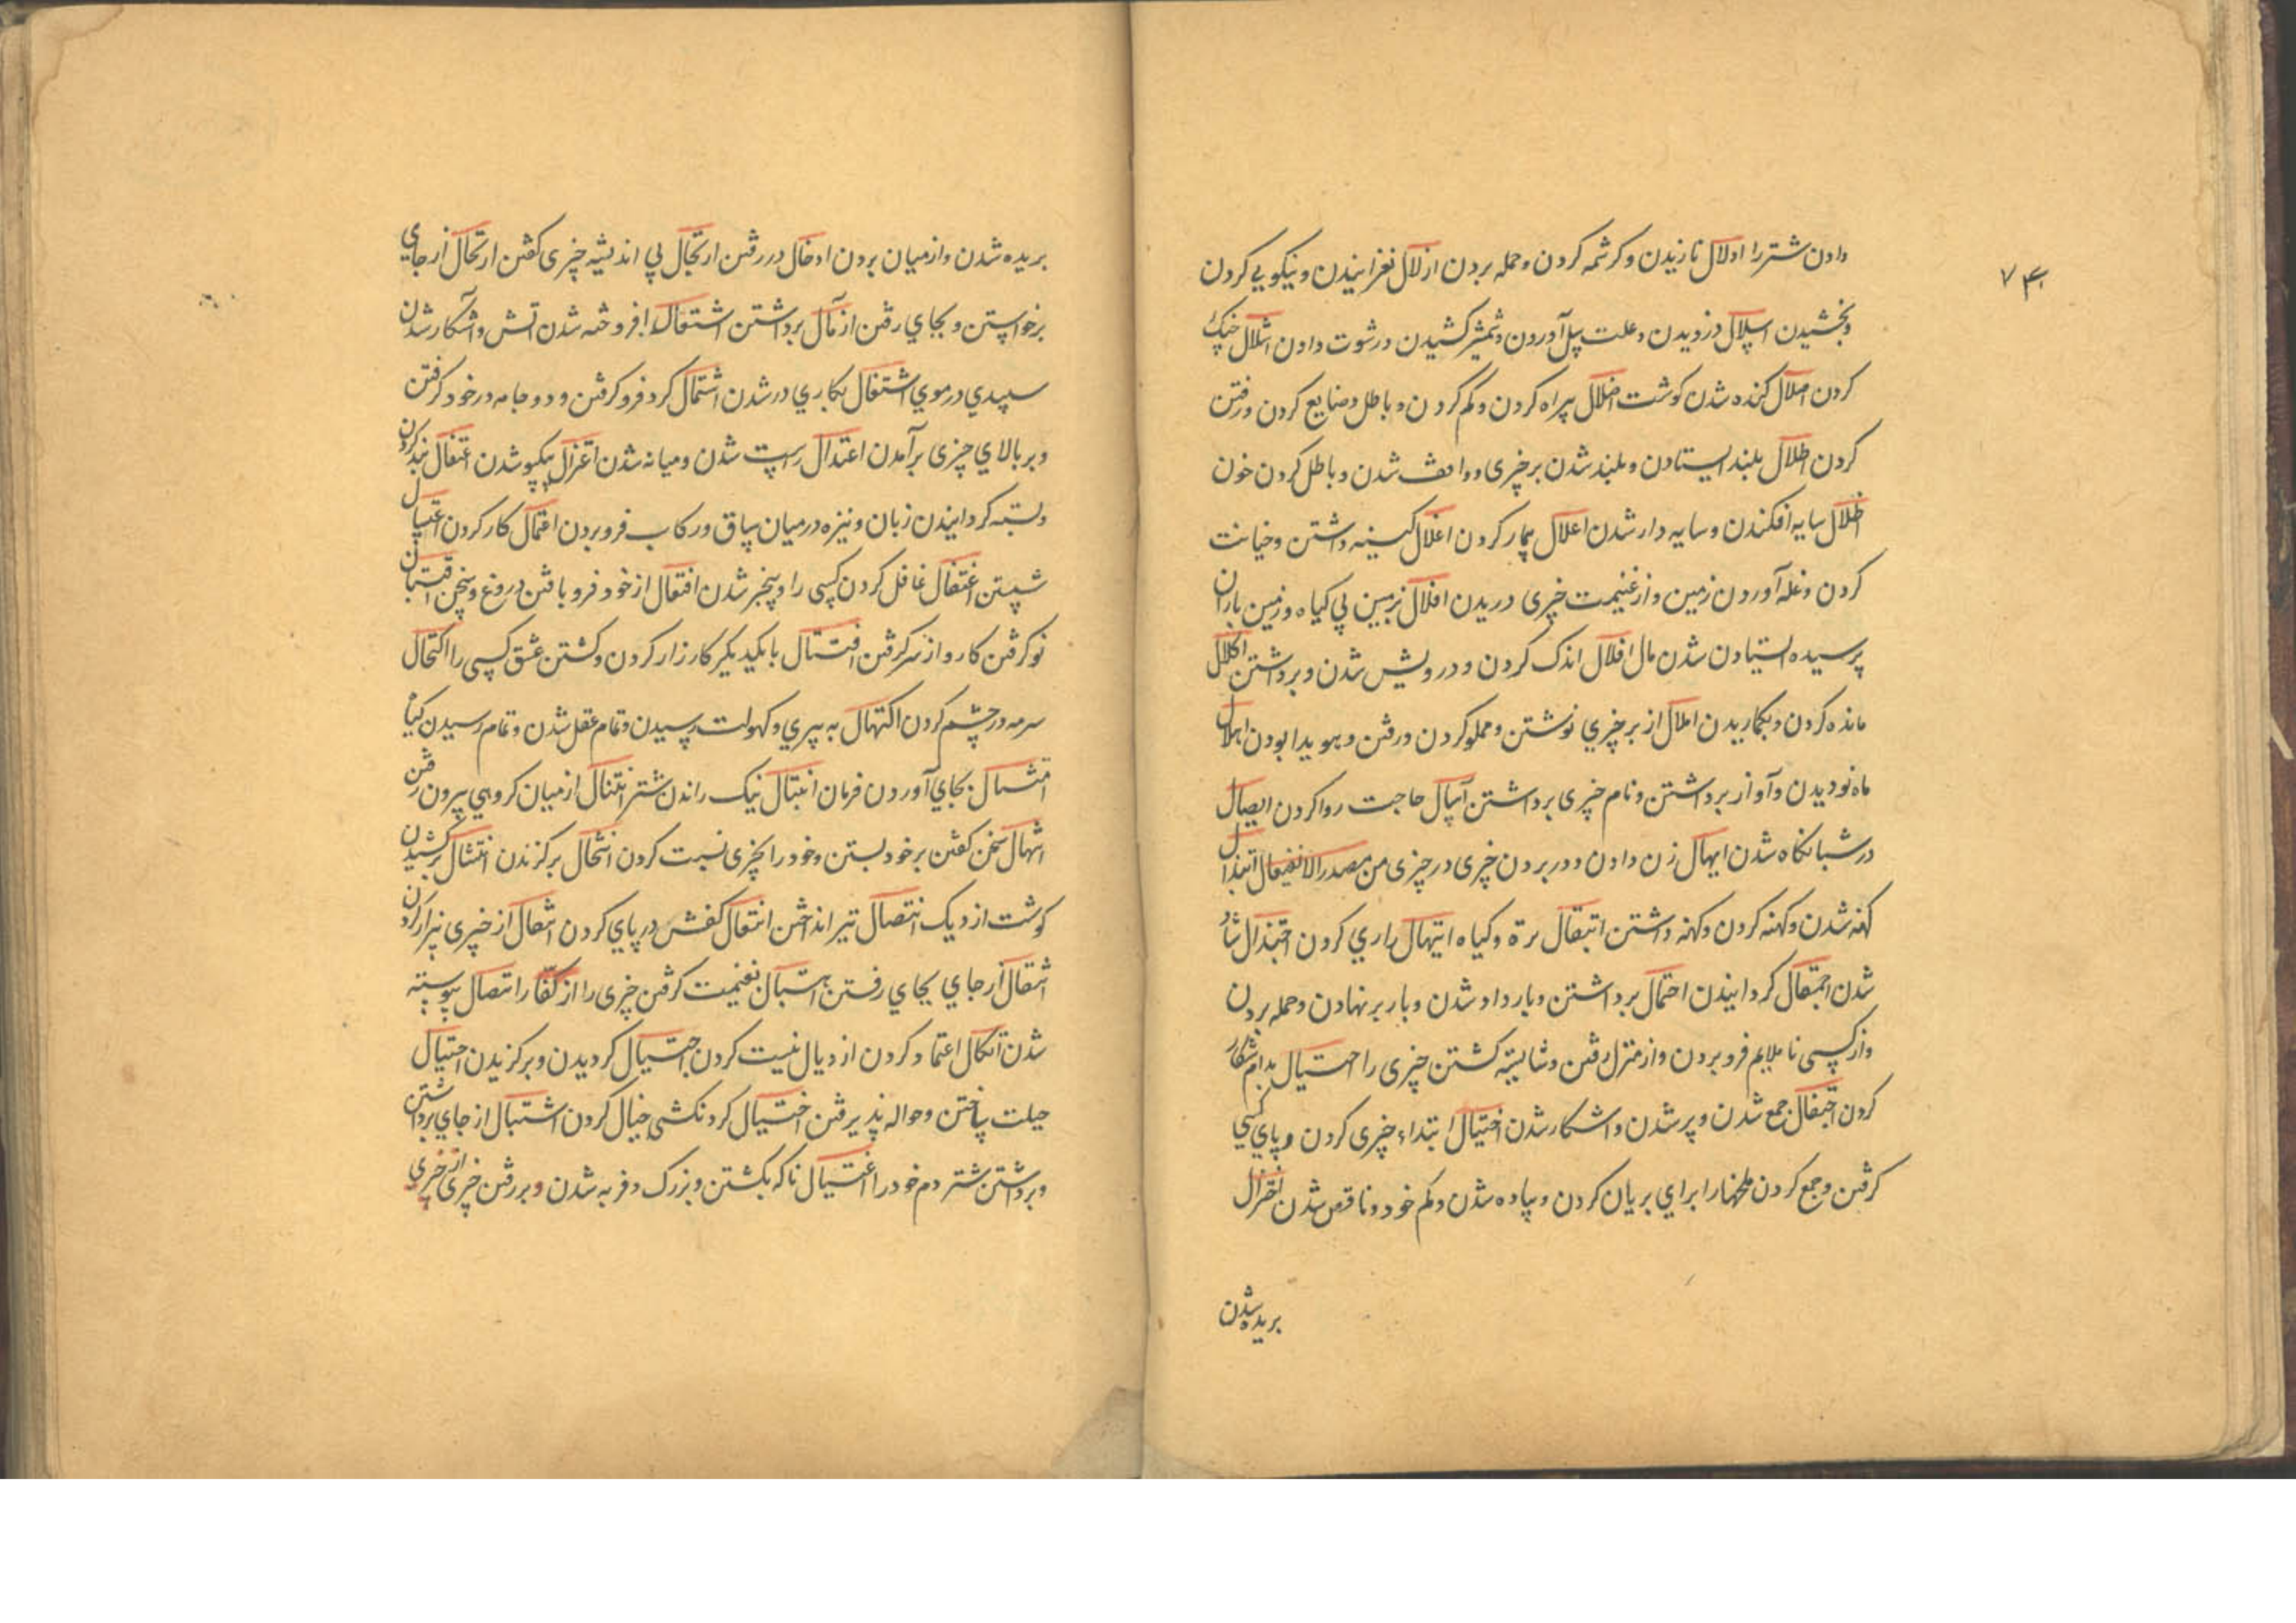 ۷۴
دادن شتر را ادلال نازیدن و کرشمه کردن و حمله بردن ازلال لغزانیدن و نیکویی کردن
و بخشیدن اسلال دزدیدن و علت سل آوردن و شمشیر کشیدن و رشوت دادن اشلال خشک
کردن اصلال کنده شدن کوشت اضلال بیراه کردن و کم کردن و باطل و ضایع کردن و رفتن
کردن اطلال بلند ایستادن و بلند شدن بر چیزی و واقف شدن و باطل کردن خون
اظلال سایه افکندن و سایه دار شدن اعلال بیمار کردن اغلال کینه داشتن و خیانت
کردن و غله آوردن زمین و از غنیمت چیزی دریدن افلال زمین بی کیاه و زمین باران
نرسیده ایستادن شدن مال اقلال اندک کردن و درویش شدن و برداشتن اکلال
مانده کردن و بکاریدن املال از بر چیزی نوشتن و مملو کردن و رفتن و هویدا بودن اهلال
ماه نو دیدن و آواز برداشتن و نام چیزی برداشتن حاجت روا کردن ایصال
در شبانکاه شدن ایهال زن دادن و در بردن چیزی در چیزی من مصدر الانفعال ابتذال
کهنه شدن و کهنه کردن و کهنه داشتن ابتقال تره و کیاه ابتهال زاری کردن اجتذال شاد
شدن کردانیدن احتمال برداشتن و بار داد شدن و بار بر نهادن و حمله بردن
و از کسی ناملایم فرو بردن و از منزل رفتن و شایسته کشتن چیزی را احتبال بدام شکار
کردن احتفال جمع شدن و پر شدن و اشکار شدن ابتداء چیزی کردن و پای کسی
کرفتن و جمع کردن ملخها را برای بریان کردن و پیاده شدن و کم خود و ناقص شدن اختزال
بریده شدن
بریده شدن و از میان بردن ادخال در رفتن ارتجال بی اندیشه چیزی کفتن ارتحال از جای
برخواستن و بجای رفتن ازمال برداشتن اشتعال افروخته شدن تش و آشکار شدن
سپیدی در موی اشتغال بکاری در شدن اشتمال کرد فرو کرفتن و دو جامه در خود کرفتن
و بر بالای چیزی برآمدن اعتدال راست شدن و میانه شدن اعتزال یکسو شدن اعتقال بند کردن
و بسته کردانیدن زبان و نیزه در میان ساق و رکاب فرو بردن اعتمال کار کردن اغتسال
شستن اغتفال غافل کردن کسی را و بیخبر شدن افتعال از خود فرو بافتن دروغ و سخن اقتبال
نو کرفتن کار و از سر کرفتن اقتتال با یکدیکر کارزار کردن و کشتن عشق کسی را اکتحال
سرمه در چشم کردن اکتهال به پیری و کهولت رسیدن و تمام عقل شدن و تمام رسیدن کیاه
امتثال بجای آوردن فرمان انتبال نیک راندن شتر انتثال از میان کروهی بیرون رفتن
سخن کفتن بر خود بستن و خود را بچیزی نسبت کردن انتخال برکزیدن انتشال برکشیدن
کوشت از دیک انتصال تیر انداختن انتعال کفش در پای کردن انتفال از چیزی بیزار کردن
انتقال از جای بجای رفتن اهتبال غنیمت کرفتن چیزی را از کفار اتصال پیوسته
شدن اتکال اعتماد کردن ازدیال نیست کردن اجتیال کردیدن و برکزیدن احتیال
حیلت ساختن و حواله پذیرفتن اختیال کردنکشی خیال کردن اشتیال از جای برداشتن
و برداشتن شتر دم خود را اغتیال ناکه بکشتن و بزرک و فربه شدن و بر رفتن چیزی از چیزی